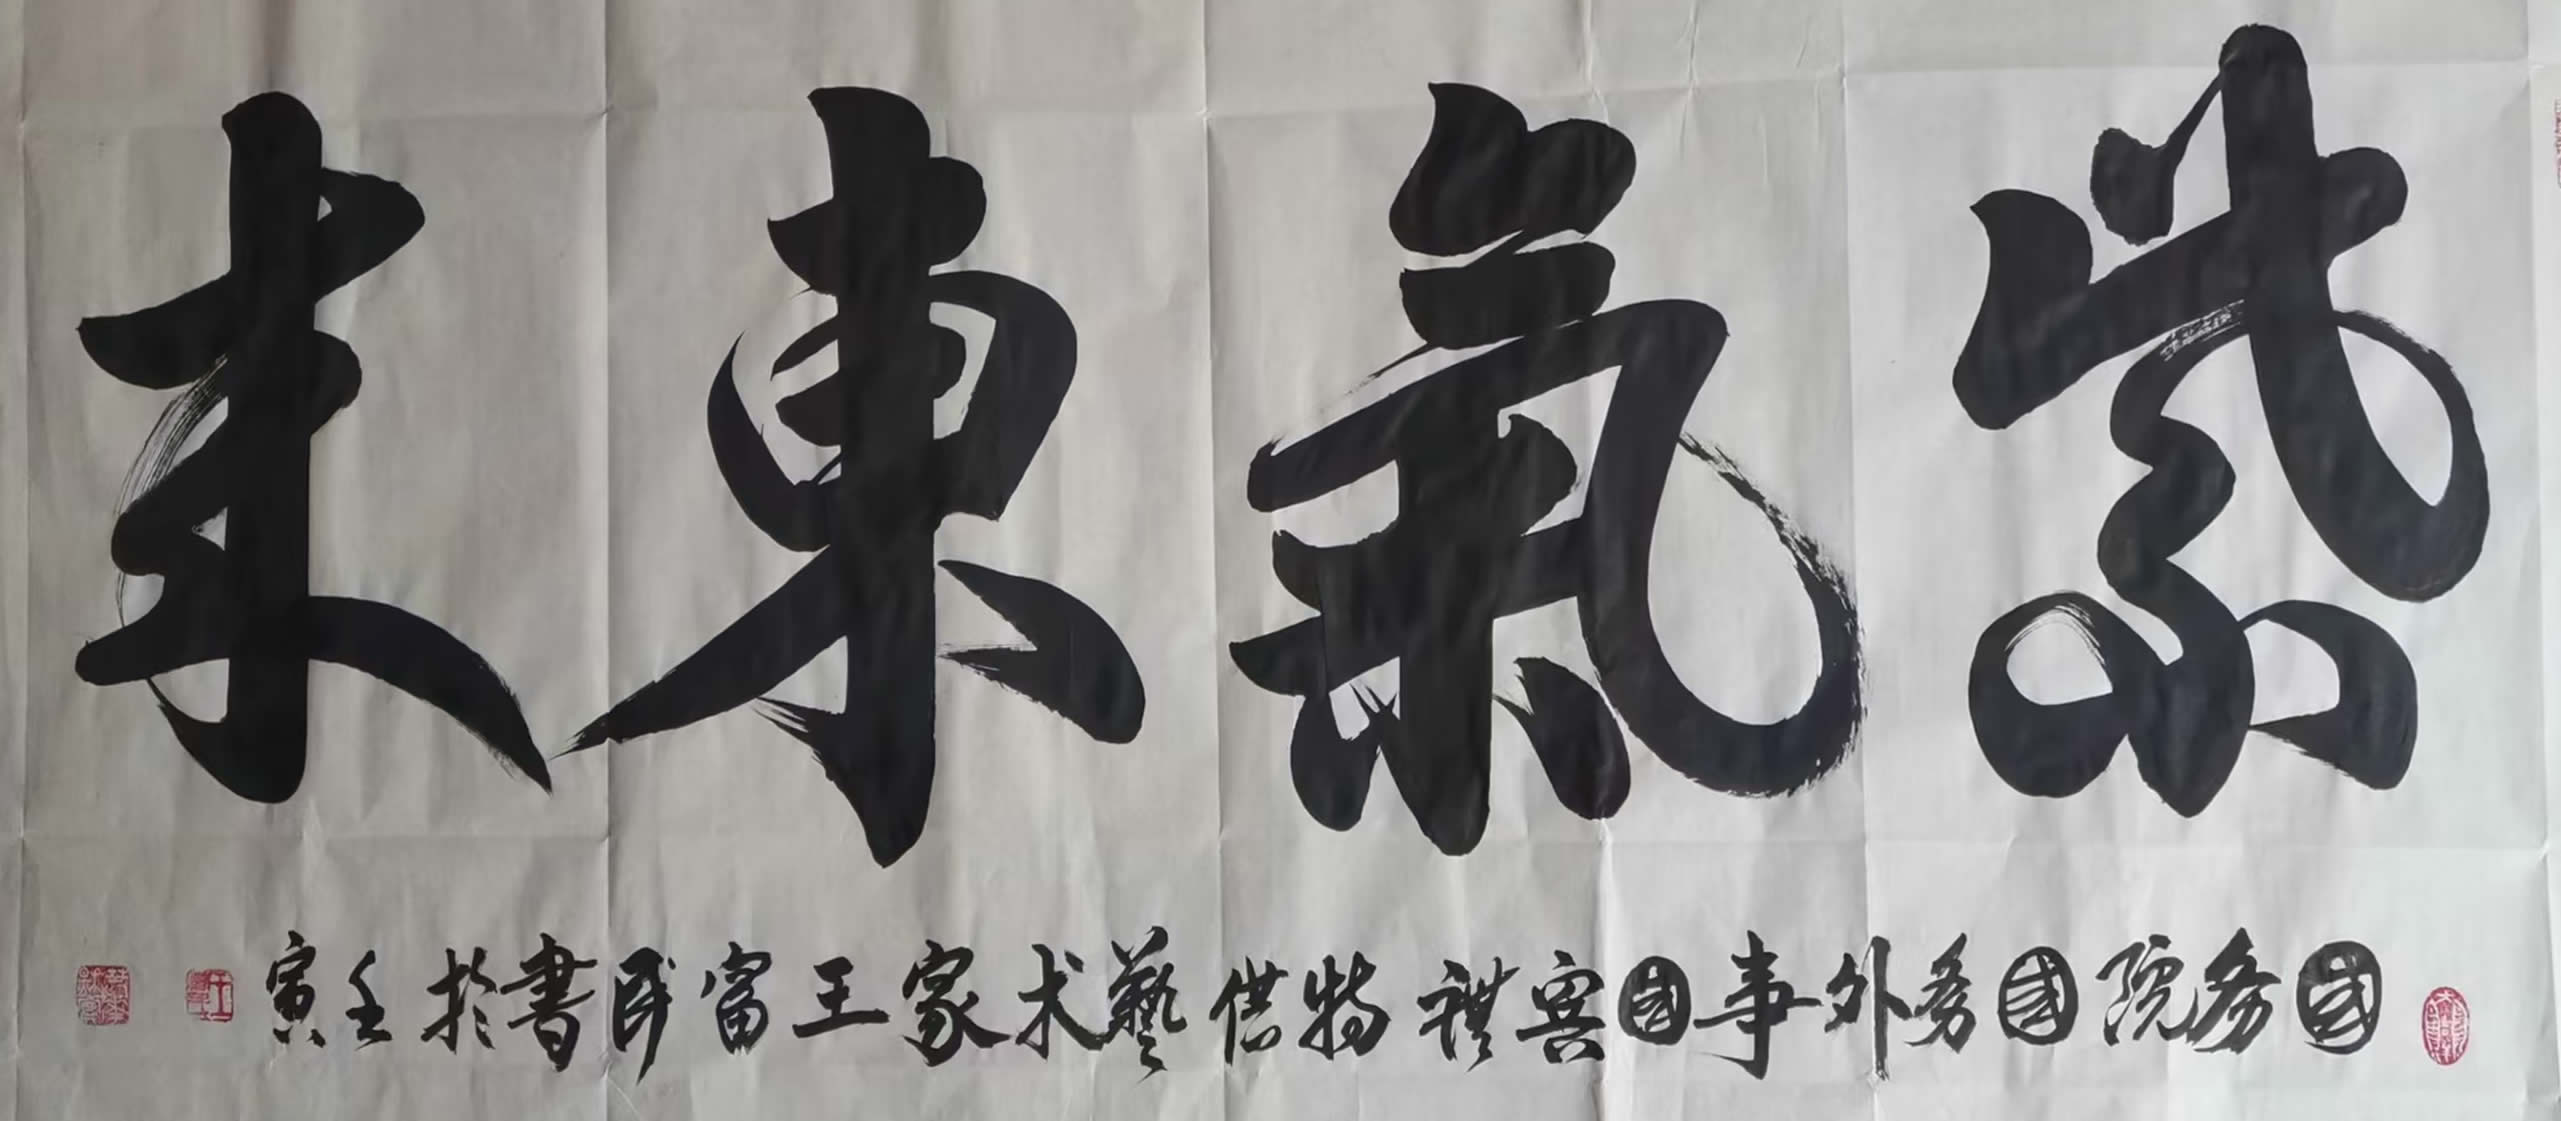 紫氣東来
國務院國務外事國賓禮特供藝术家王富民書於壬寅